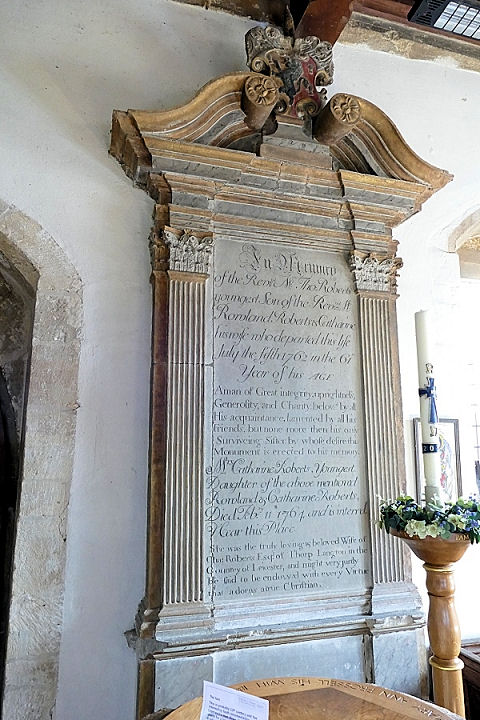 In Memory
of the Rev.d Mr. Tho. Roberts
youngest Son of the Rev.d Mr.
Rowland Roberts & Catharine
his wife who departed this life
July the fifth 1762 in the 61
Year of his AGE
A man of Great integrity, uprightness,
Generosity, and Charity, belov'd by all
His acquaintance, lamented by all his
friends, but none more then his only
Surviveing Sister by whose desire this
Monument is erected to his memory.
Mrs. Catharine Roberts, Youngest
Daughter of the above mentioned
Rowland & Catharine Roberts,
Died 11 1764, and is interred
Near this Place.
She was the truly loving & beloved Wife of
Roberts Esq. of Thorp Langton in the
County of Leicester, and might very justly
be said to be endowed with every Virtue
that adorns a true Christian.
The font